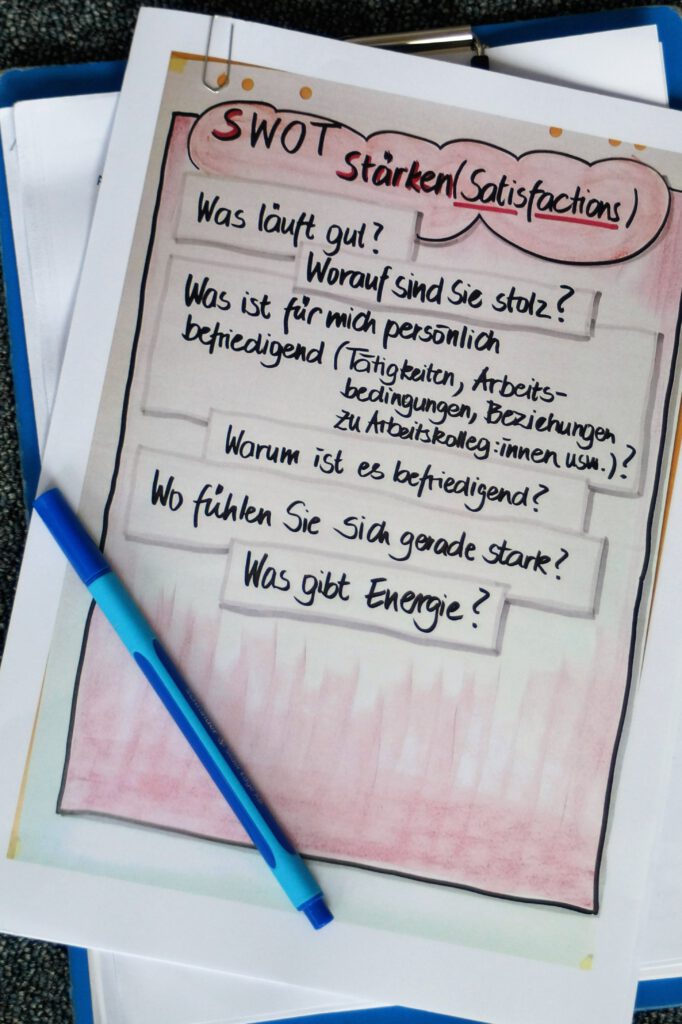 SWOT
Stärken (Satisfactions)
Was läuft gut?
Worauf sind Sie stolz?
Was ist für mich persönlich
befriedigend (Tätigkeiten, Arbeits-
bedingungen, Beziehungen
zu Arbeitskolleg:innen usw.)?
Warum ist es befriedigend?
Wo fühlen Sie sich gerade stark?
Was gibt Energie?